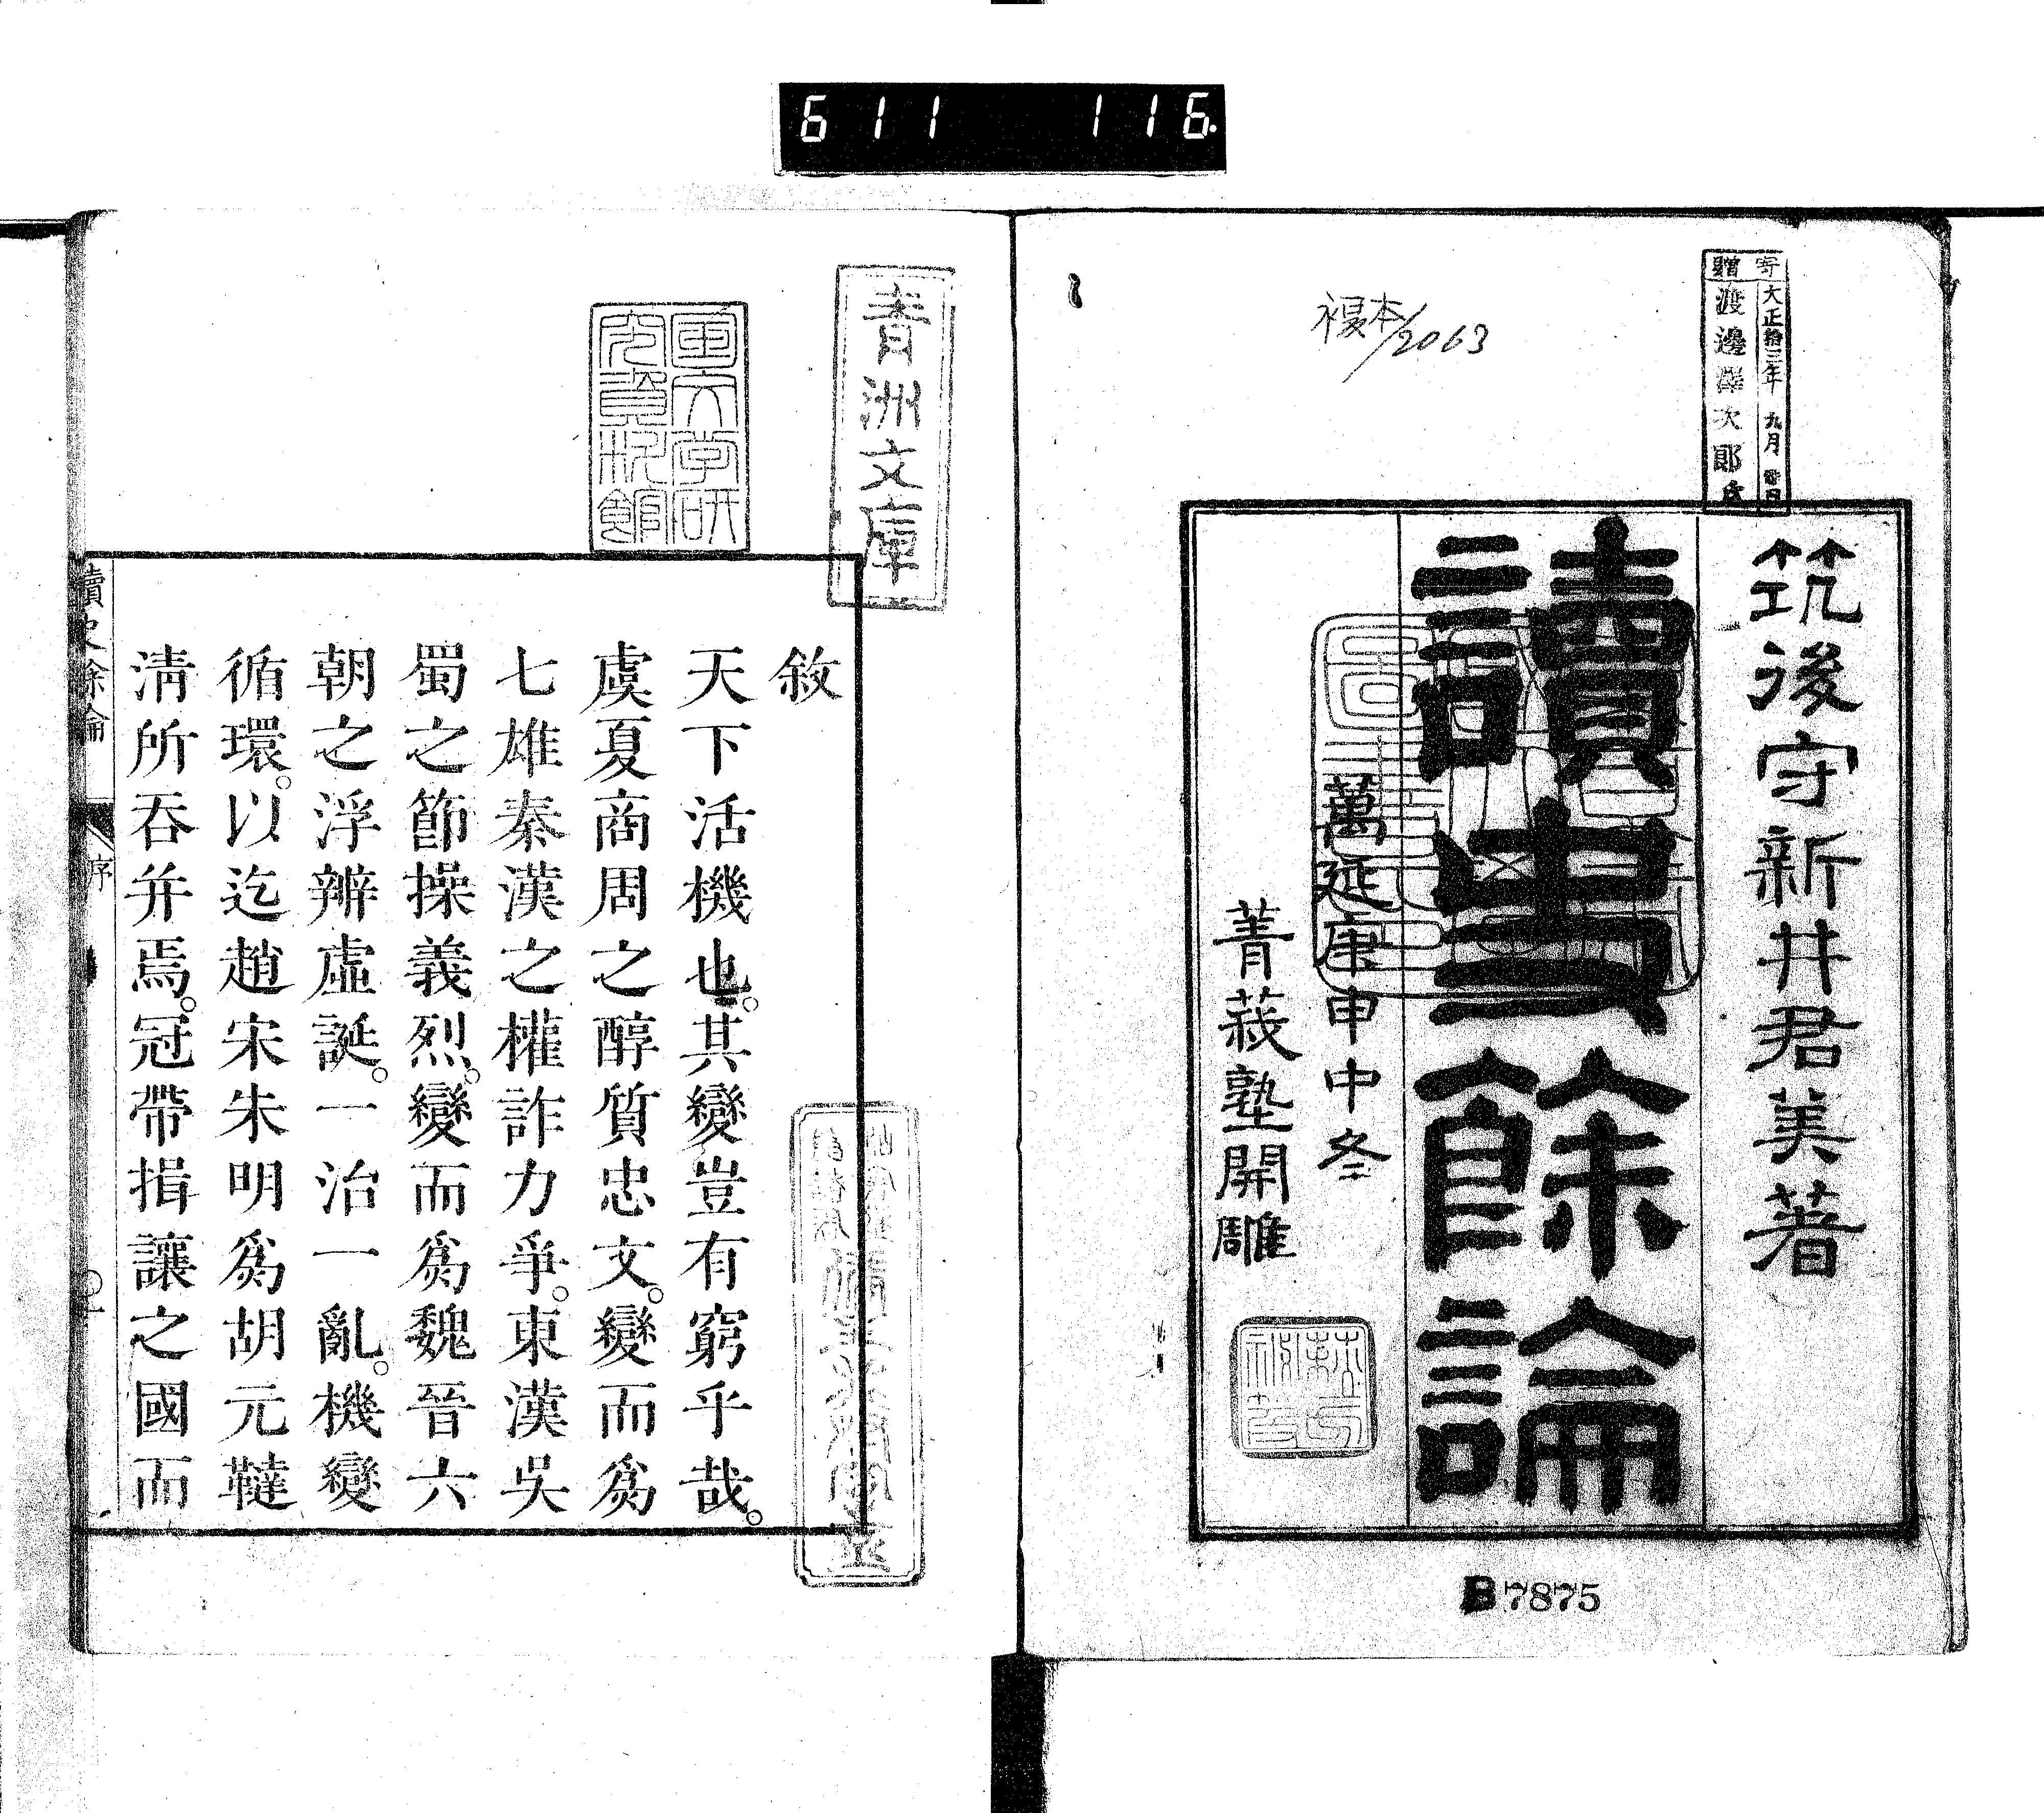 6 11 116.
寄贈
大正拾三年 九月
渡邊澤次郎氏
複本/2063
筑後守新井君美著
讀史餘論
萬延庚申中冬
菁莪塾開雕
B7875
青洲文庫
国文学研
究資料館
敘
天下活機也。其變豈有窮乎哉。
虞夏商周之醇質忠文。變而爲
七雄秦漢之權詐力爭。東漢吳
蜀之節操義烈。變而爲魏晉六
朝之浮辨虛誕。一治一亂。機變
循環。以迄趙宋朱明爲胡元韃
淸所吞并焉。冠帶揖讓之國而
讀史餘論
序
〇一